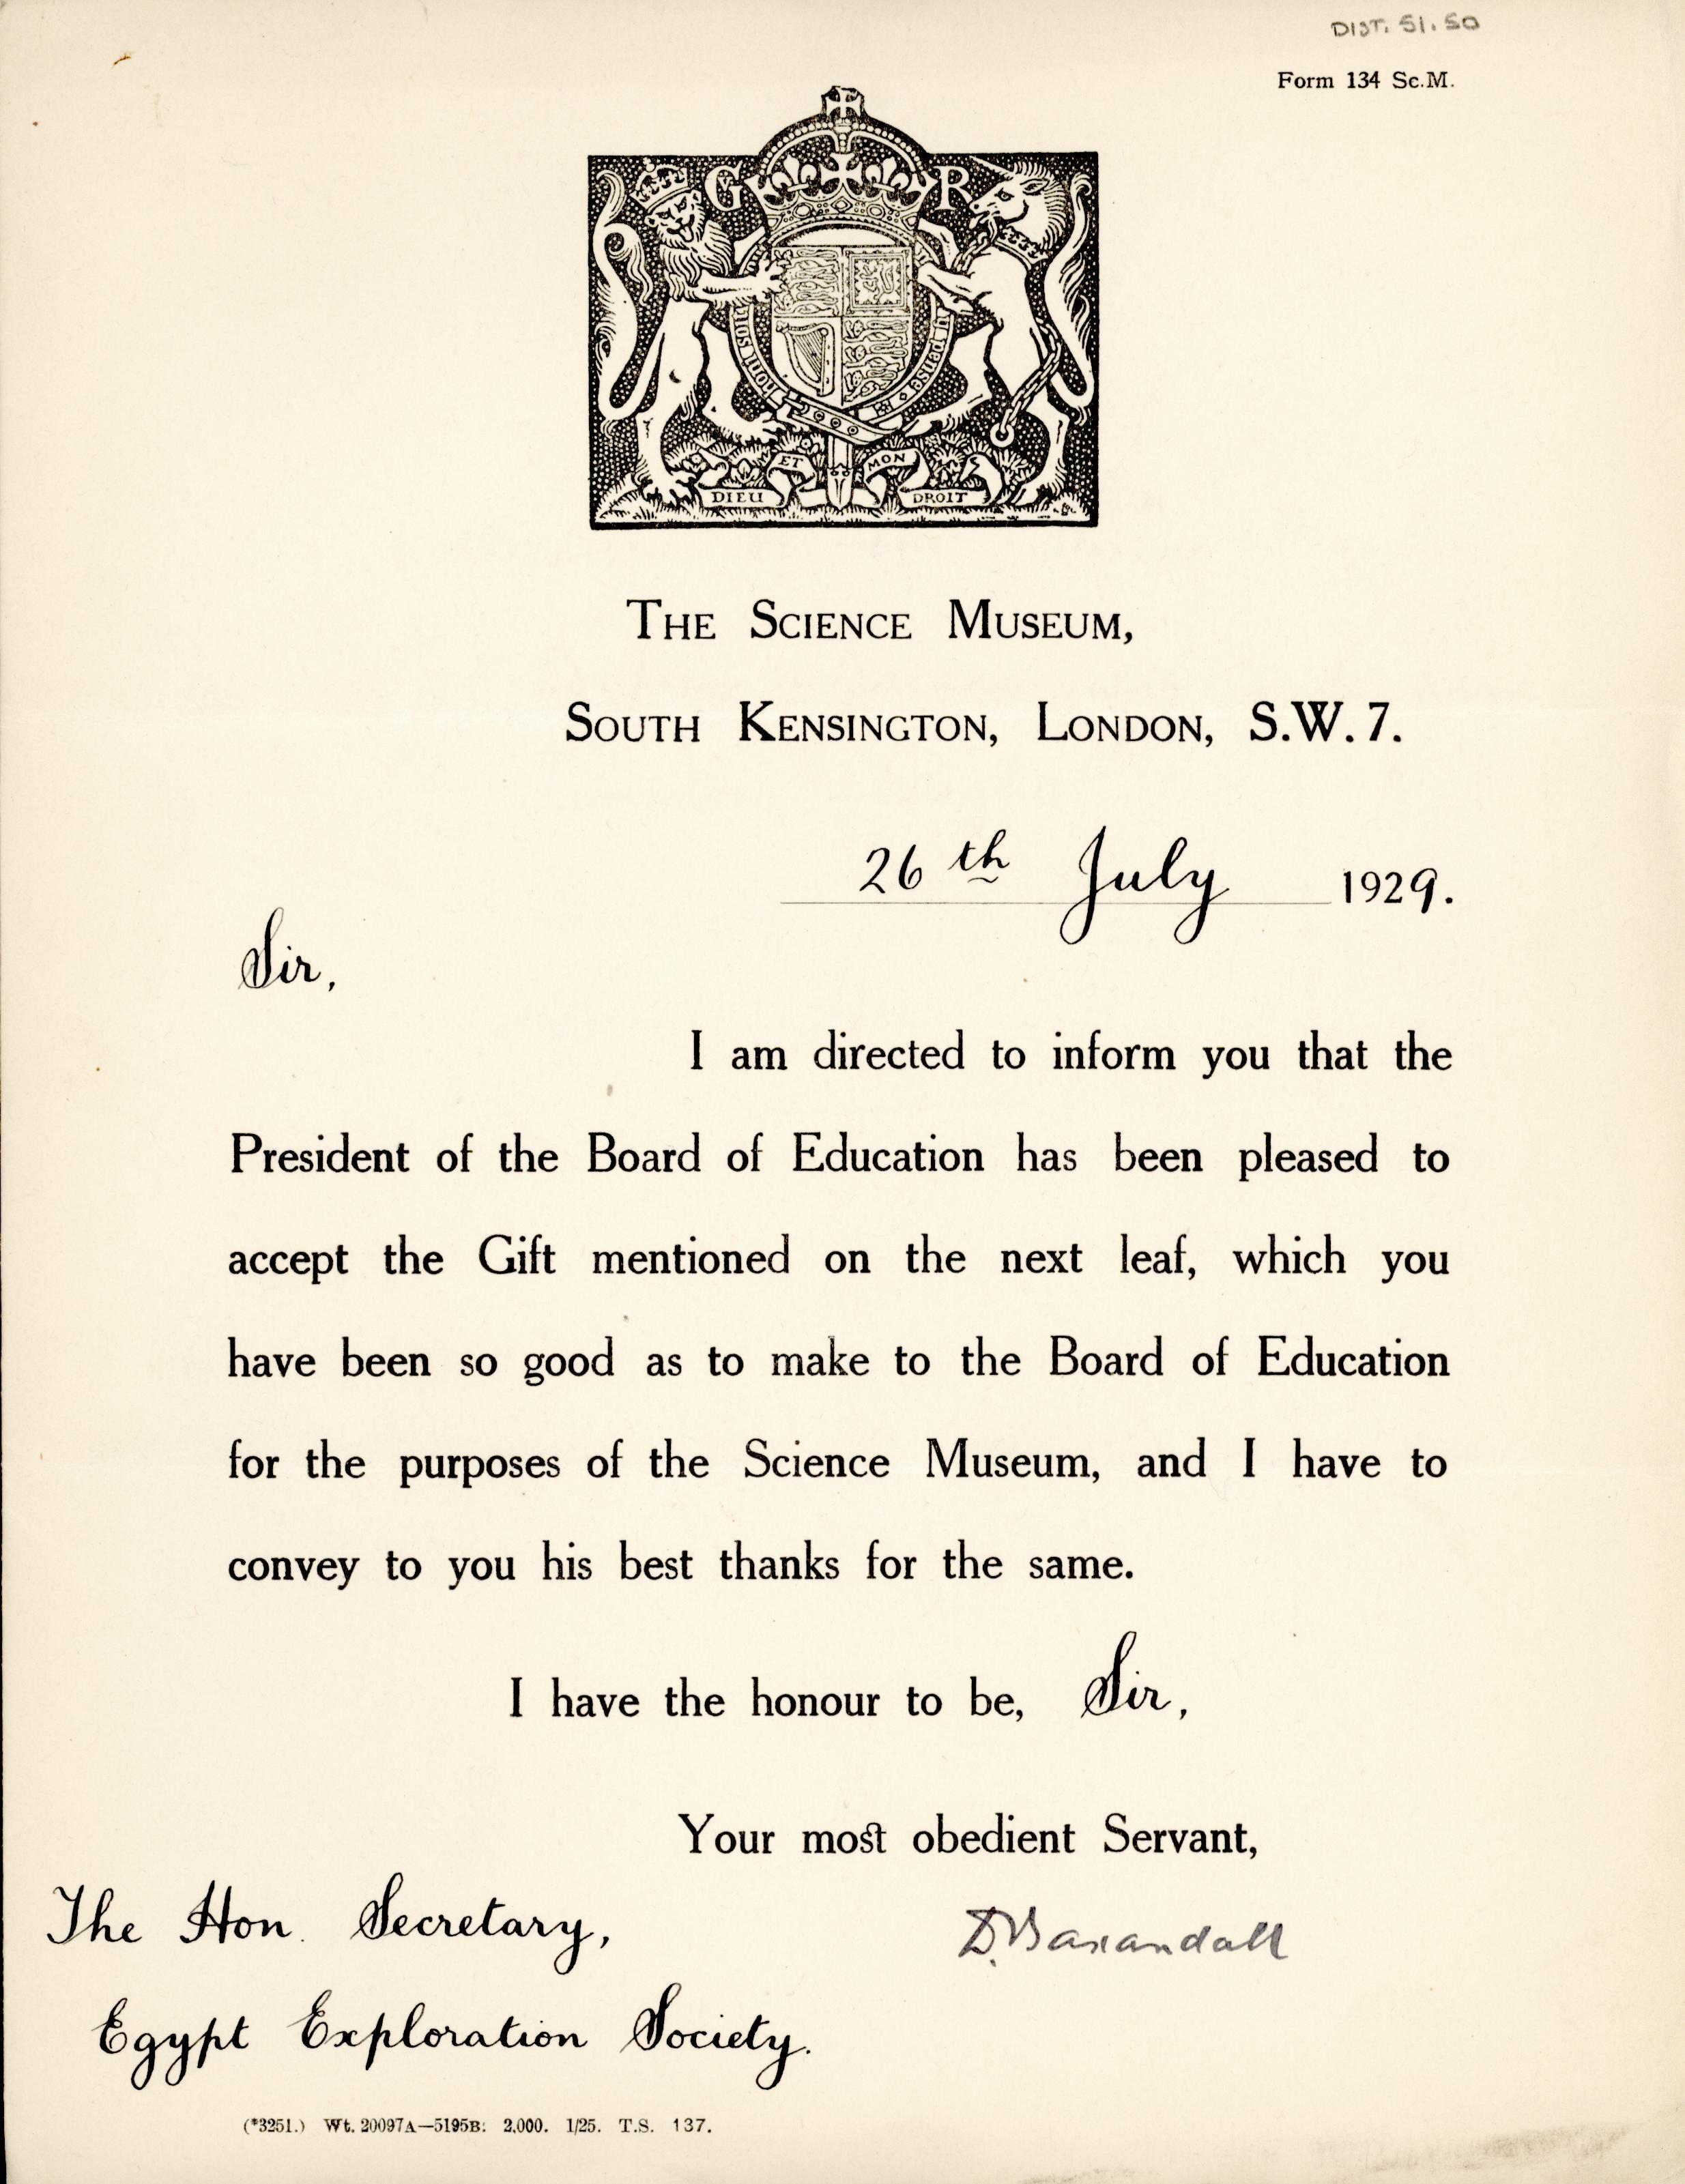 DIST. 51.50
Form 134 Sc.M.
G R
honi soit
y pense
ET MON
DIEU DROIT
THE SCIENCE MUSEUM,
SOUTH KENSINGTON, LONDON, S.W. 7.
26th July 1929.
Sir,
I am directed to inform you that the
President of the Board of Education has been pleased to
accept the Gift mentioned on the next leaf, which you
have been so good as to make to the Board of Education
for the purposes of the Science Museum, and I have to
convey to you his best thanks for the same.
I have the honour to be, Sir,
Your most obedient Servant,
The Hon. Secretary,
D. Baxandall
Egypt Exploration Society.
(*3251.) Wt. 20097A—5195B. 2,000. 1/25. T.S. 137.